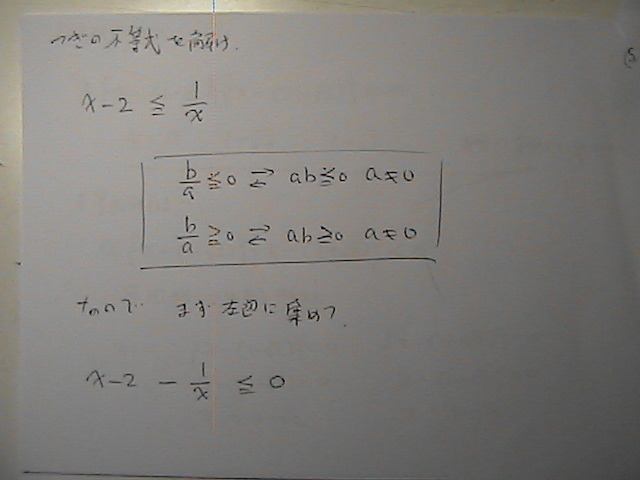 つぎの不等式を解け.
x-2 ≦ 1/x
b/a ≦0 ⇄ ab≦0 a≠0
b/a ≧0 ⇄ ab≧0 a≠0
なので まず 左辺に集めて.
x-2 - 1/x ≦ 0